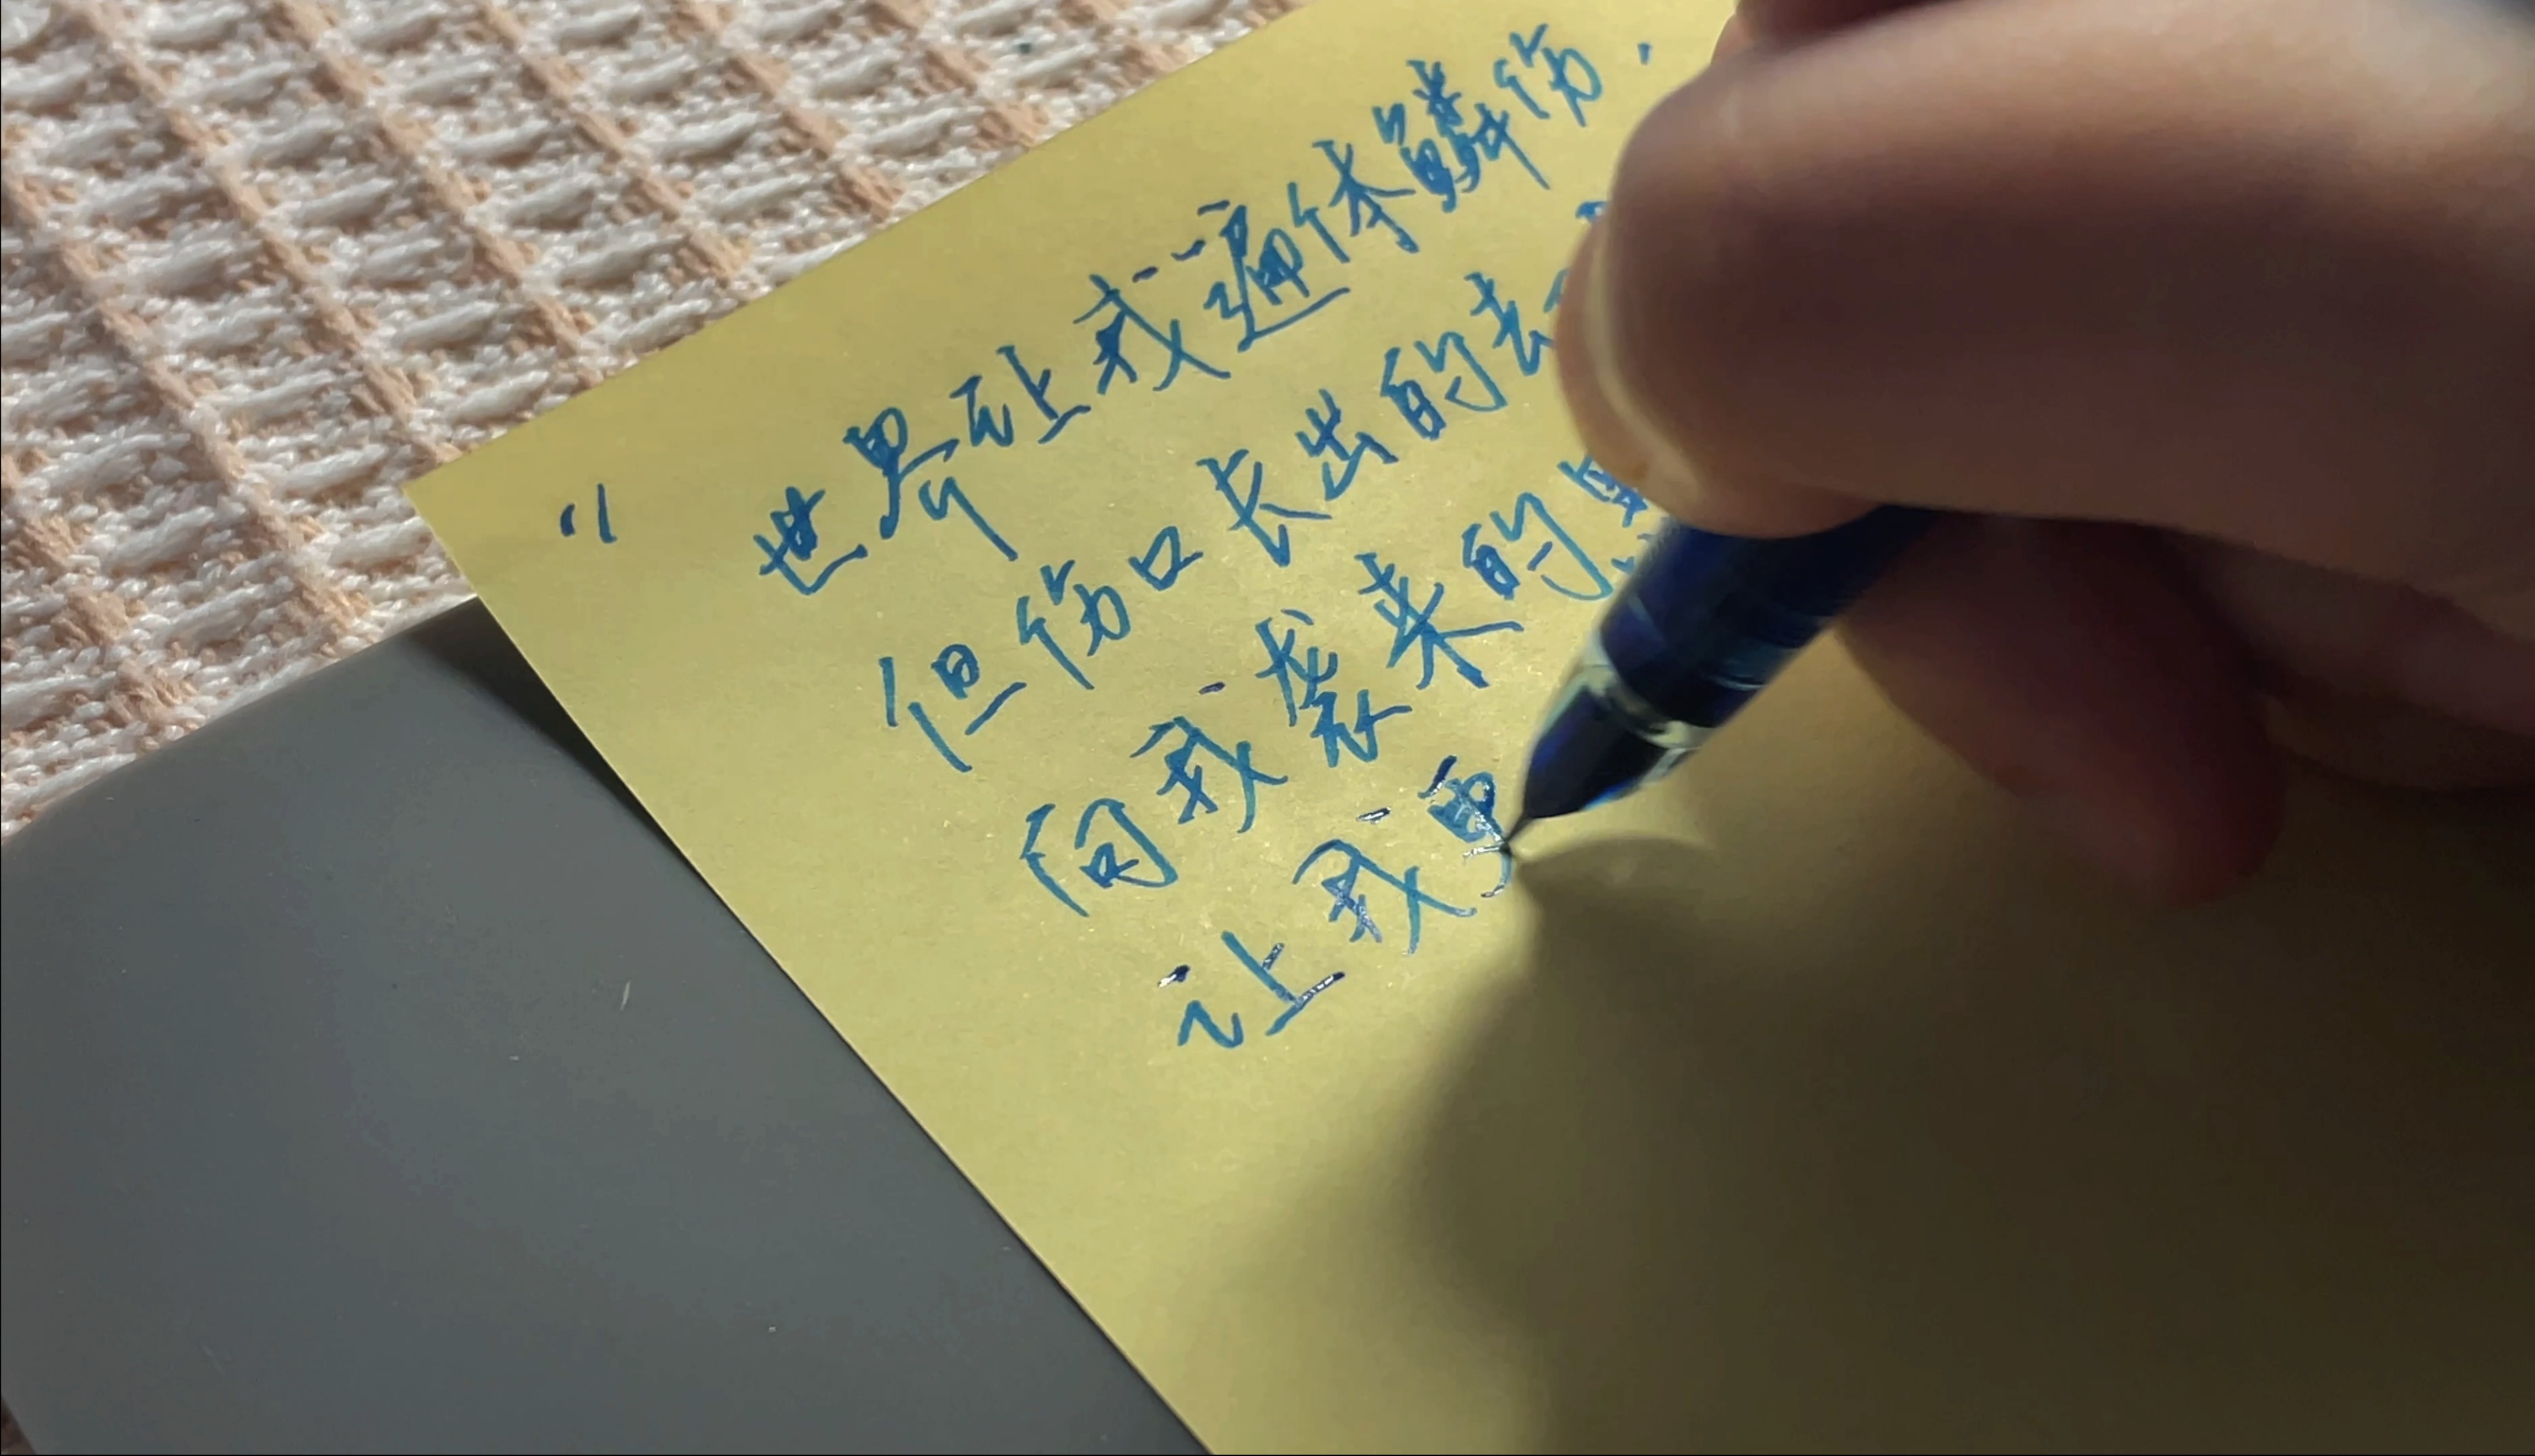 “世界让我遍体鳞伤，
但伤口长出的
向我袭来的
让我